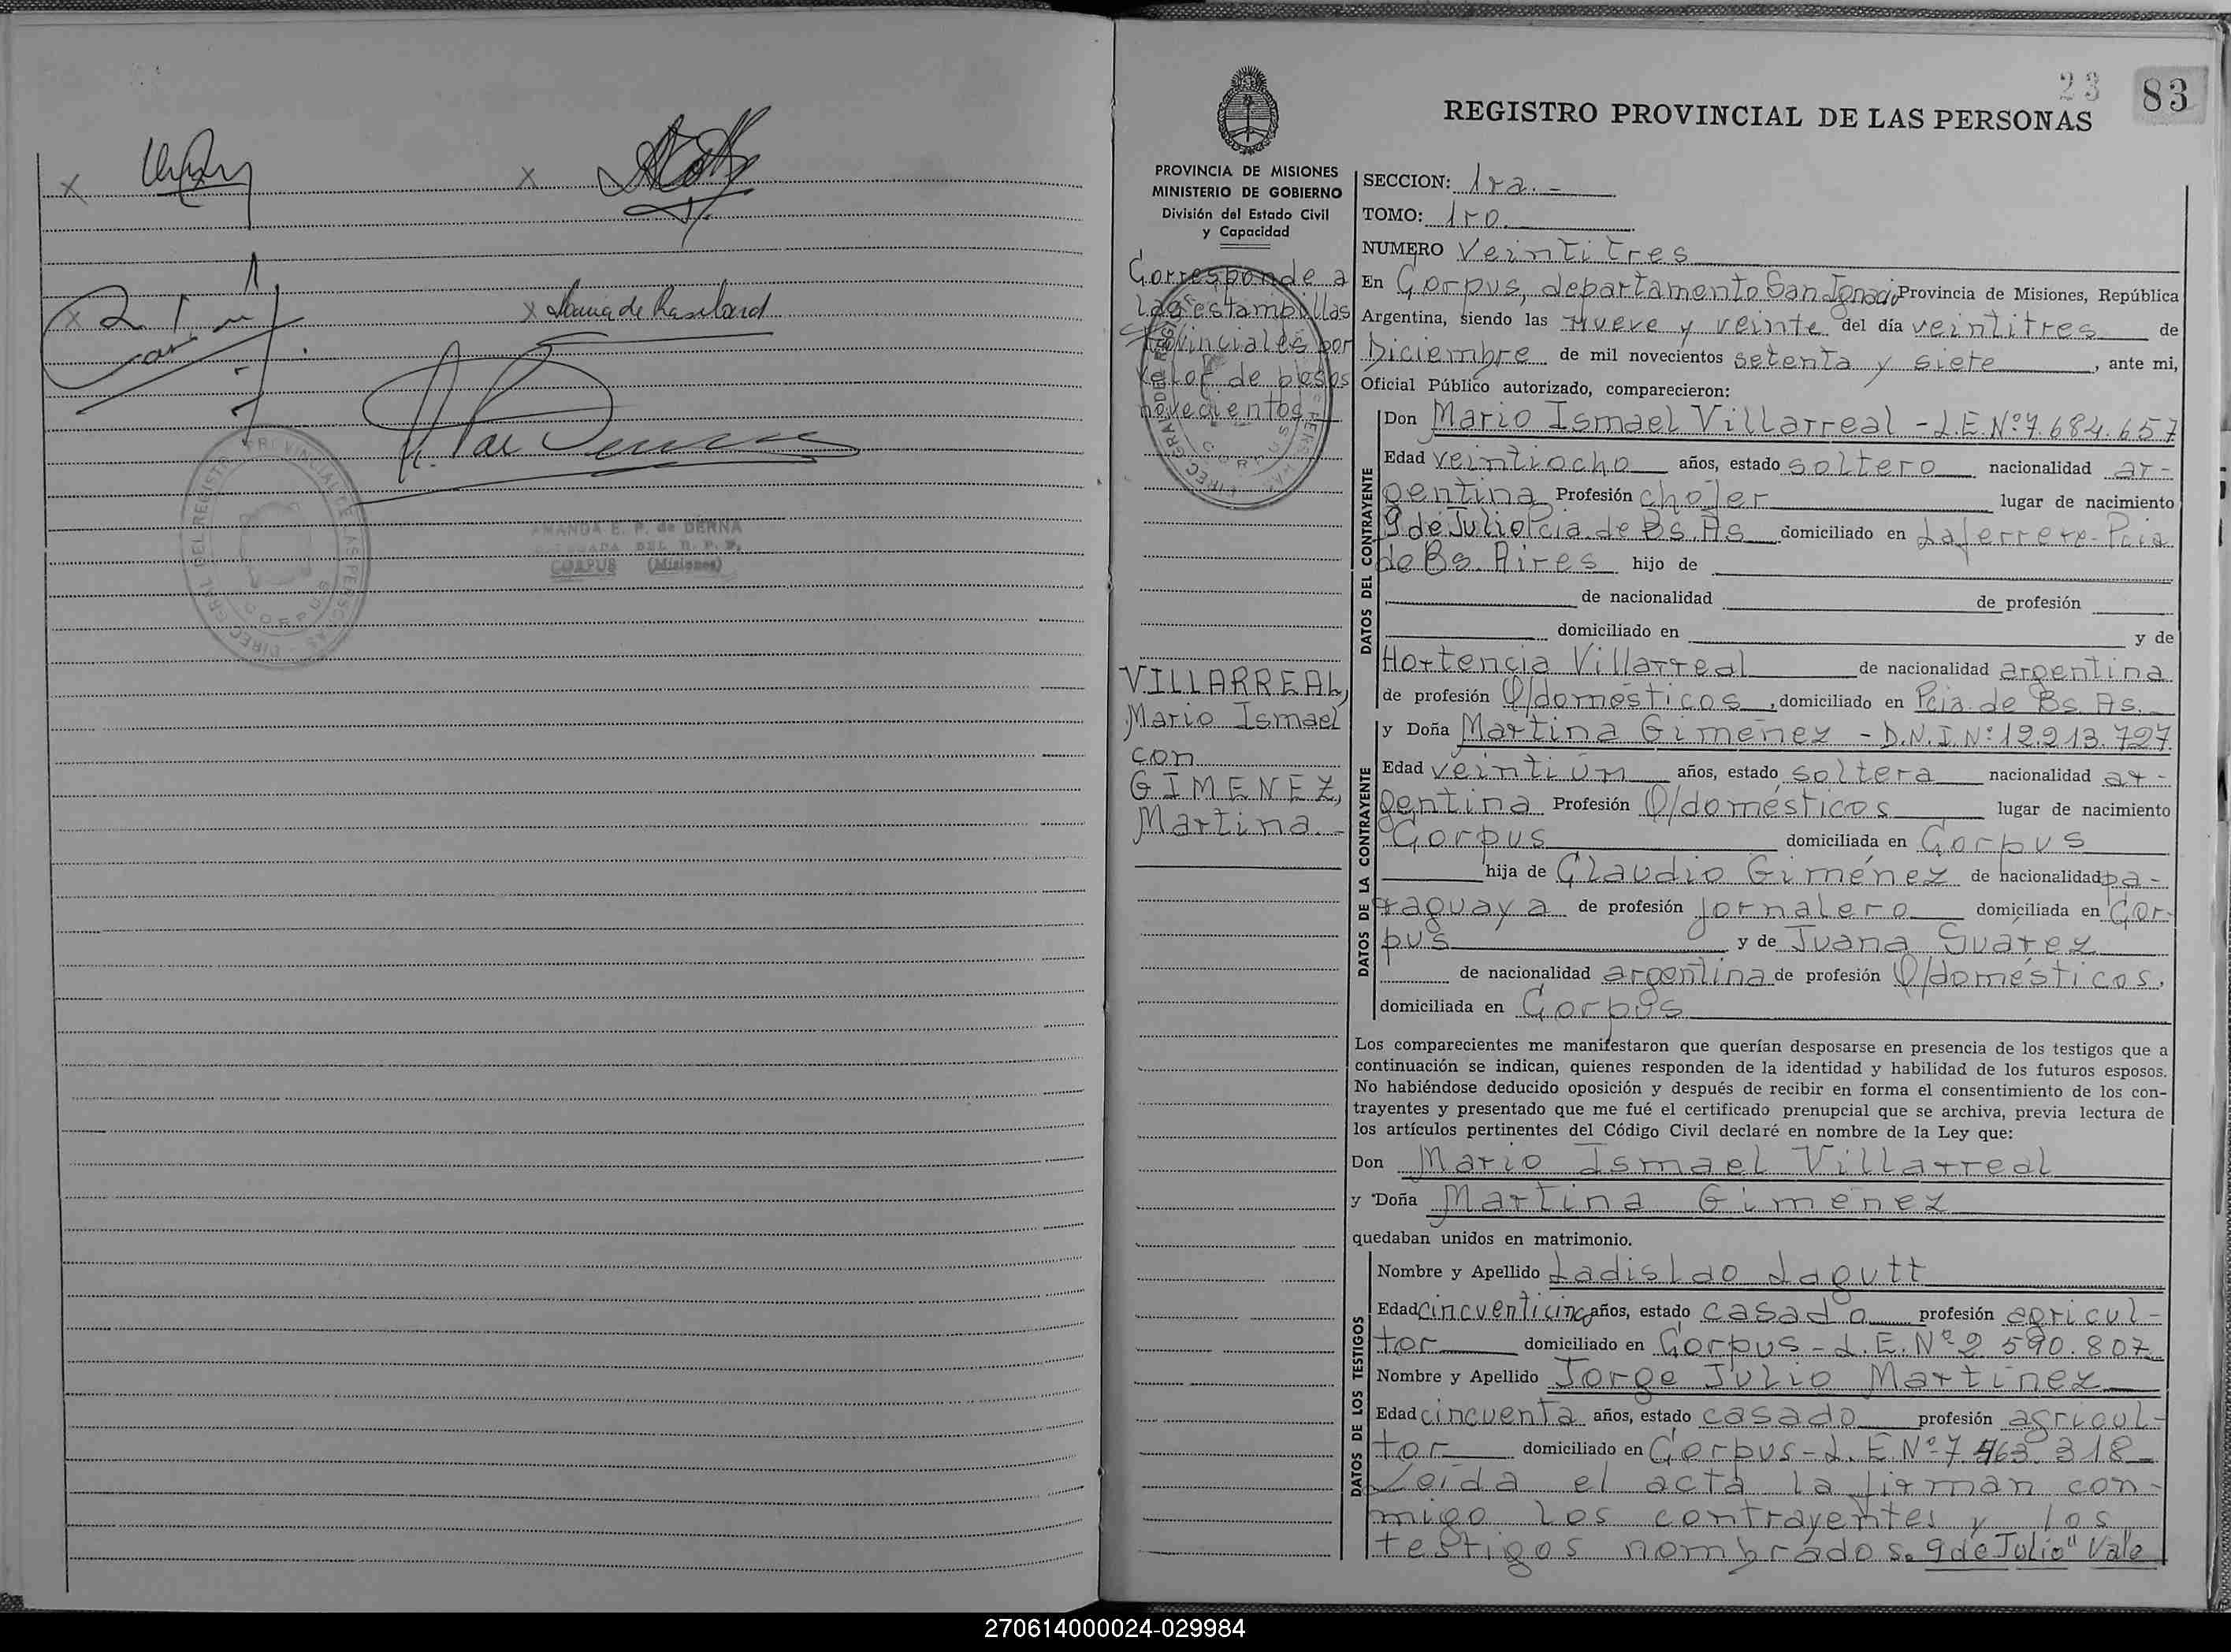 AMANDA E. P. de DERNA
DEL R. P. P.
CORPUS (Misiones)
23 83
REGISTRO PROVINCIAL DE LAS PERSONAS
PROVINCIA DE MISIONES
MINISTERIO DE GOBIERNO
División del Estado Civil
y Capacidad
Corresponde a
las estampillas
Provinciales por
valor de pesos
novecientos
VILLARREAL,
Mario Ismael
con
GIMENEZ,
Martina.-
SECCION: 1ra.-
TOMO: 1ro.
NUMERO Veintitres
En Corpus, departamento San Ignacio Provincia de Misiones, República
Argentina, siendo las nueve y veinte del día veintitres de
Diciembre de mil novecientos setenta y siete, ante mi,
Oficial Público autorizado, comparecieron:
DATOS DEL CONTRAYENTE
Don Mario Ismael Villarreal - L.E. Nº 7.684.657
Edad veintiocho años, estado soltero nacionalidad ar-
gentina Profesión chofer lugar de nacimiento
9 de Julio Pcia. de Bs. As domiciliado en Laferrere- Pcia
de Bs. Aires hijo de
de nacionalidad de profesión
domiciliado en y de
Hortencia Villarreal de nacionalidad argentina
de profesión Q/domésticos, domiciliado en Pcia. de Bs. As.
DATOS DE LA CONTRAYENTE
y Doña Martina Gimenez - D.N.I. Nº 12.213.727
Edad veintiún años, estado soltera nacionalidad ar-
gentina Profesión Q/domésticos lugar de nacimiento
Corpus domiciliada en Corpus
hija de Claudio Giménez de nacionalidad pa-
raguaya de profesión jornalero domiciliada en Cor-
pus y de Juana Suárez
de nacionalidad argentina de profesión Q/domésticos,
domiciliada en Corpus
Los comparecientes me manifestaron que querían desposarse en presencia de los testigos que a
continuación se indican, quienes responden de la identidad y habilidad de los futuros esposos.
No habiéndose deducido oposición y después de recibir en forma el consentimiento de los con-
trayentes y presentado que me fué el certificado prenupcial que se archiva, previa lectura de
los artículos pertinentes del Código Civil declaré en nombre de la Ley que:
Don Mario Ismael Villarreal
y Doña Martina Gimenez
quedaban unidos en matrimonio.
DATOS DE LOS TESTIGOS
Nombre y Apellido Ladislao Lagutt
Edad cincuenticinco años, estado casado profesión agricul-
tor domiciliado en Corpus - L.E. Nº 2 590.807
Nombre y Apellido Jorge Julio Martinez
Edad cincuenta años, estado casado profesión agricul-
tor domiciliado en Corpus - L.E. Nº 7.463.318
Leida el acta la firman con-
migo los contrayentes y los
testigos nombrados. 9 de Julio" Vale
270614000024-029984